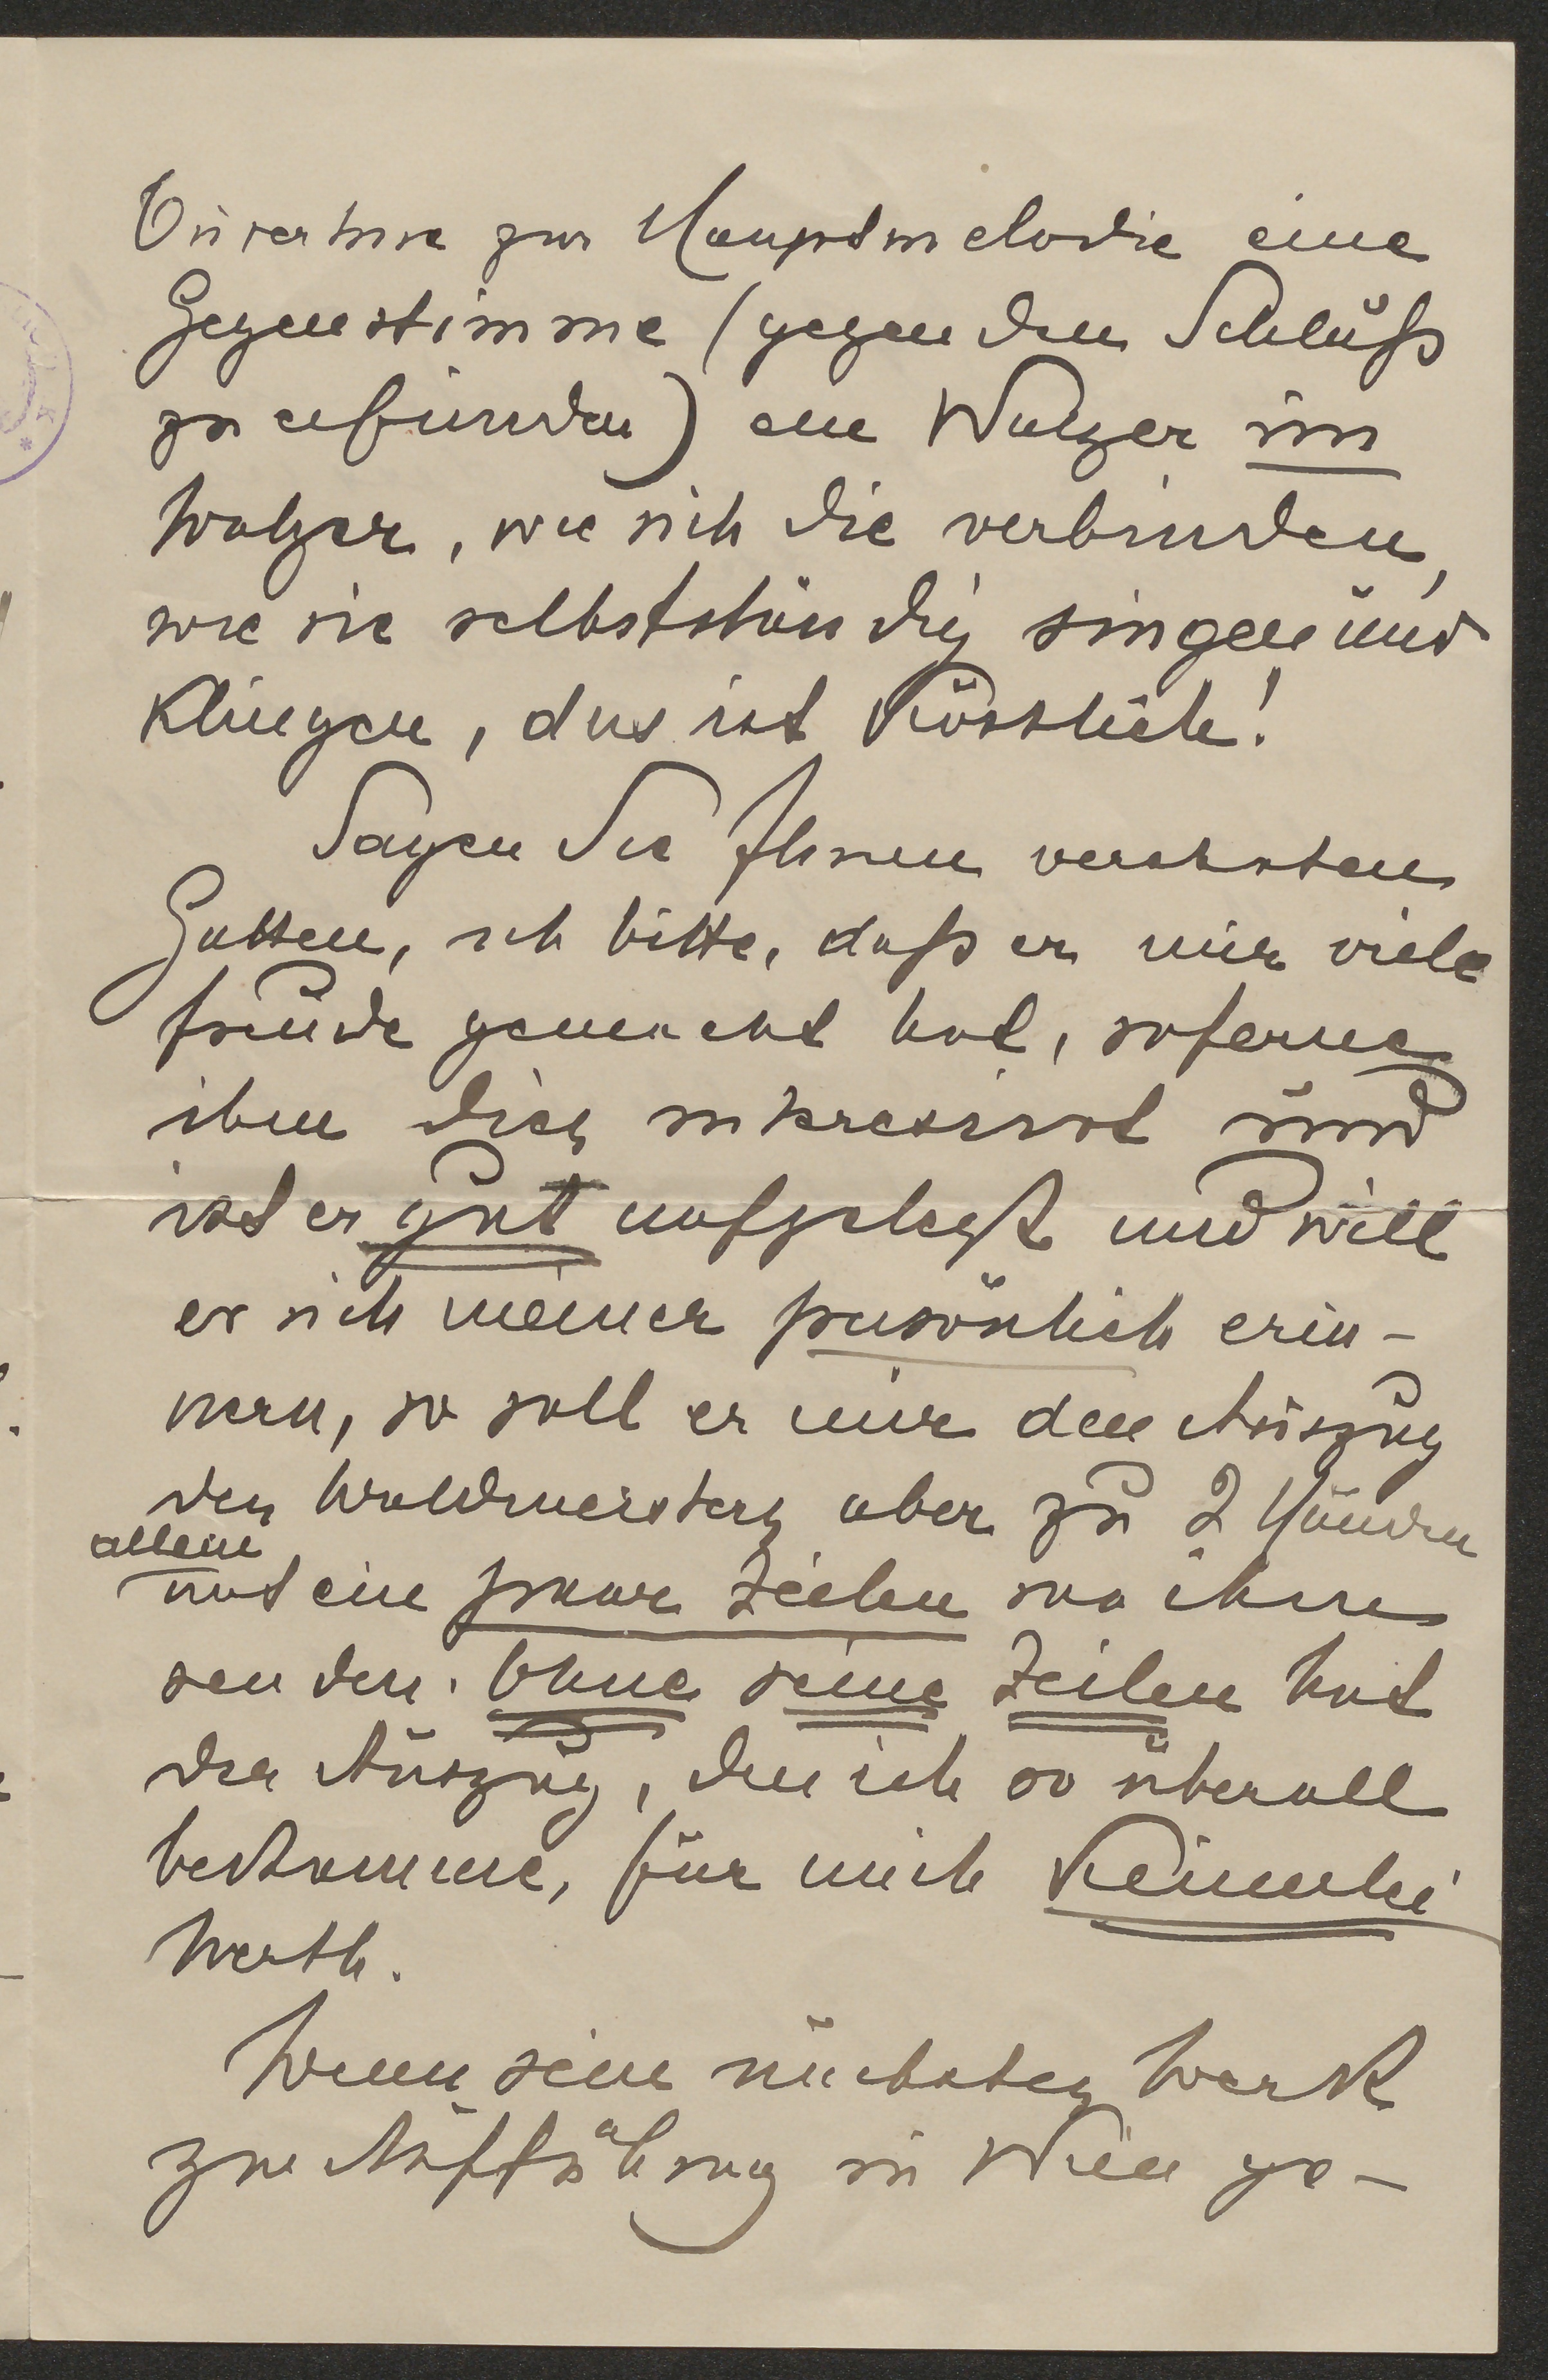 Ouverture zur Hauptmelodie eine
Gegenstimme (gegen den Schluß
zu erfunden) ein Walzer im
Walzer, wie sich die verbinden,
wie sie selbstständig singen und
klingen, das ist köstlich!
Sagen Sie Ihrem verehrten
Gatten, ich bitte, daß er mir viele
Freude gemacht hat, soferne
ihm dies interessirt und
ist er gut aufgelegt und will
er sich meiner persönlich erin-
nern, so soll er mir den Auszug
des Waldmeisters aber zu 2 Händen
allein
mit ein paar Zeilen von ihm
senden. Ohne seine Zeilen hat
der Auszug, den ich so überall
bekomme, für mich keinerlei
Werth.
Wenn sein nächstes Werk
zur Aufführung in Wien ge-